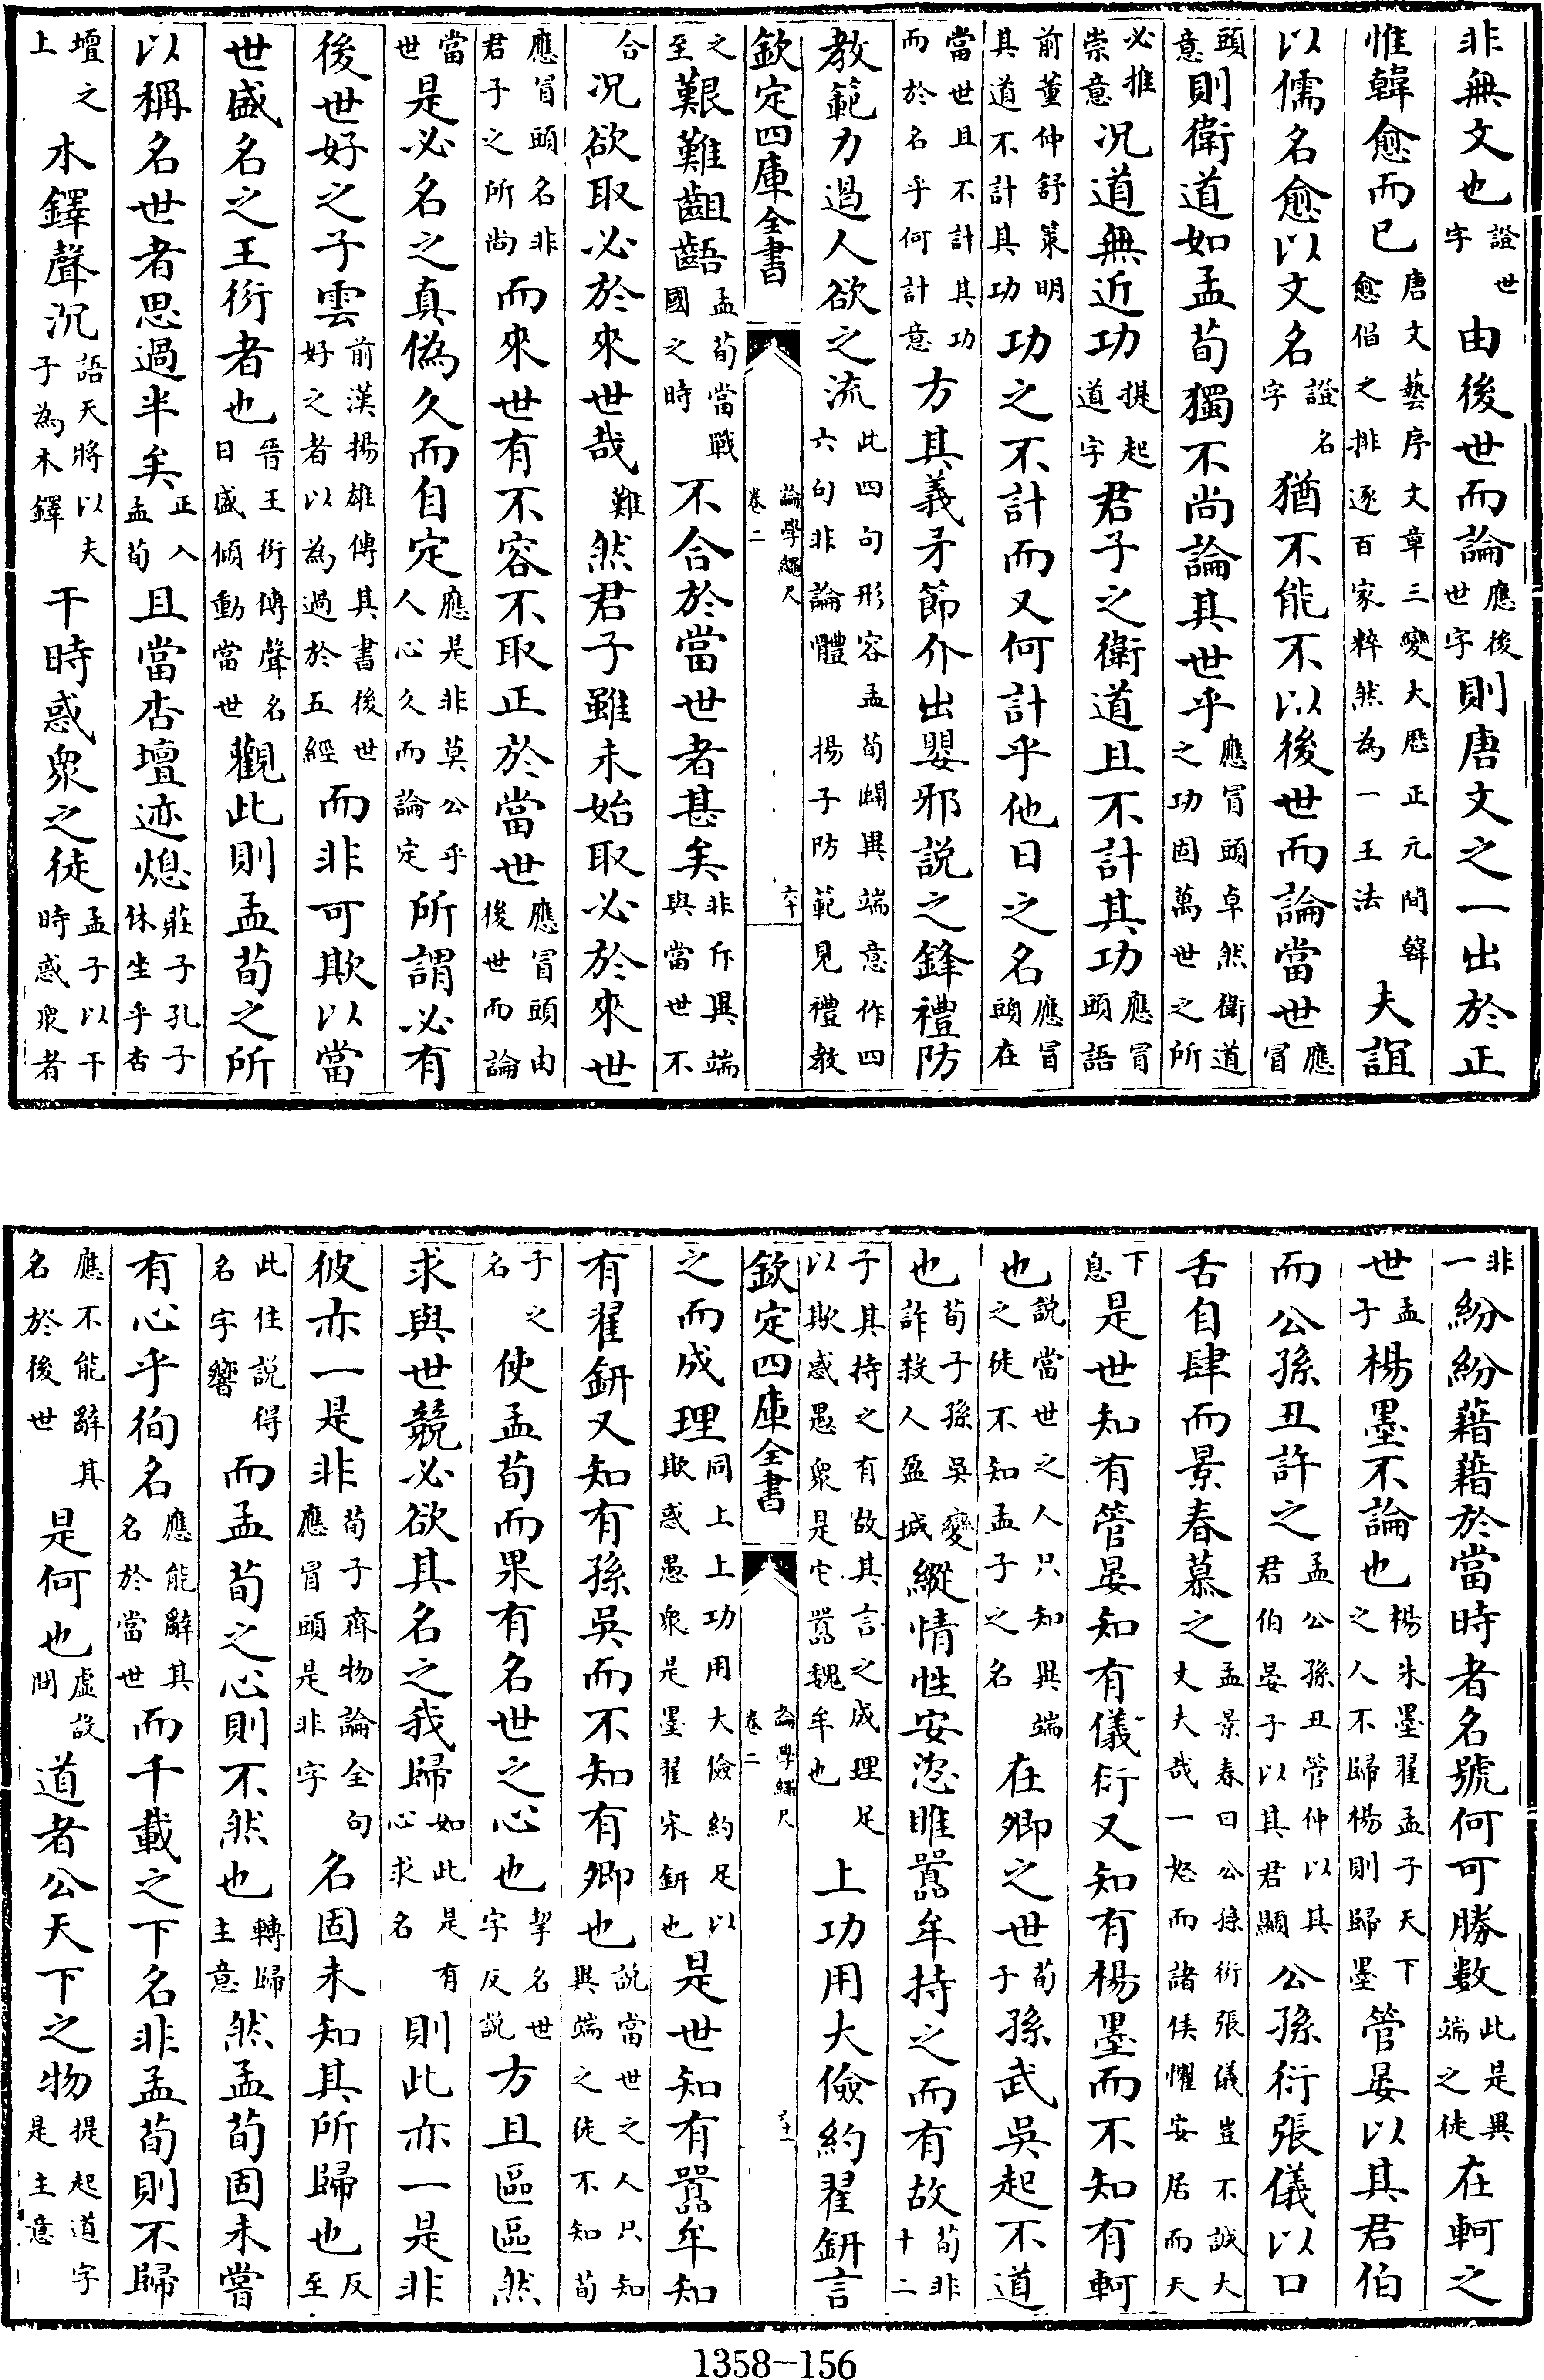 非無文也證世字由後世而論應後世字則唐文之一出於正
惟韓愈而已唐文藝序文章三變大厯正元間韓愈倡之排逐百家粹然為一王法夫誼
以儒名愈以文名證名字猶不能不以後世而論當世應冒
頭意則衛道如孟荀獨不尚論其世乎應冒頭卓然衛道之功固萬世之所
必推崇意况道無近功提起道字君子之衛道且不計其功應冒頭語
前董仲舒策明其道不計其功功之不計而又何計乎他日之名應冒頭在
當世且不計其功而於名乎何計意方其義矛節介出嬰邪説之鋒禮防
教範力過人欲之流此四句形容孟荀闢異端意作四六句非論體揚子防範見禮教
欽定四庫全書 論學繩尺 卷二 六十
之至艱難齟齬孟荀當戰國之時不合於當世者甚矣非斥異端與當世不
合况欲取必於來世哉難然君子雖未始取必於來世
應冒頭名非君子之所尚而來世有不容不取正於當世應冒頭由後世而論
當世是必名之真偽久而自定應是非莫公乎人心久而論定所謂必有
後世好之子雲前漢揚雄傳其書後世好之者以為過於五經而非可欺以當
世盛名之王衍者也晉王衍傳聲名日盛傾動當世觀此則孟荀之所
以稱名世者思過半矣正入孟荀且當杏壇迹熄莊子孔子休坐乎杏
壇之上木鐸聲沉語天將以夫子為木鐸干時惑衆之徒孟子以干時惑衆者
非一紛紛藉藉於當時者名號何可勝數此是異端之徒在軻之
世孟子楊墨不論也楊朱墨翟孟子天下之人不歸楊則歸墨管晏以其君伯
而公孫丑許之孟公孫丑管仲以其君伯晏子以其君顯公孫衍張儀以口
舌自肆而景春慕之孟景春曰公孫衍張儀豈不誠大丈夫哉一怒而諸侯懼安居而天
下息是世知有管晏知有儀衍又知有楊墨而不知有軻
也説當世之人只知異端之徒不知孟子之名在卿之世荀子孫武吳起不道
也荀子孫吳變詐殺人盈城縱情性安恣睢嚚牟持之而有故荀非十二
子其持之有故其言之成理足以欺惑愚衆是它嚚魏牟也上功用大儉約翟鈃言
欽定四庫全書 論學繩尺 卷二 六十一
之而成理同上上功用大儉約足以欺惑愚衆是墨翟宋鈃也是世知有嚚牟知
有翟鈃又知有孫吳而不知有卿也説當世之人只知異端之徒不知荀
子之名使孟荀而果有名世之心也挈名世字反説方且區區然
求與世競必欲其名之我歸如此是有心求名則此亦一是非
彼亦一是非荀子齊物論全句應冒頭是非字名固未知其所歸也反至
此住説得名字響而孟荀之心則不然也轉歸主意然孟荀固未嘗
有心乎徇名應能辭其名於當世而千載之下名非孟荀則不歸
應不能辭其名於後世是何也虛設問道者公天下之物提起道字是主意
1358-156